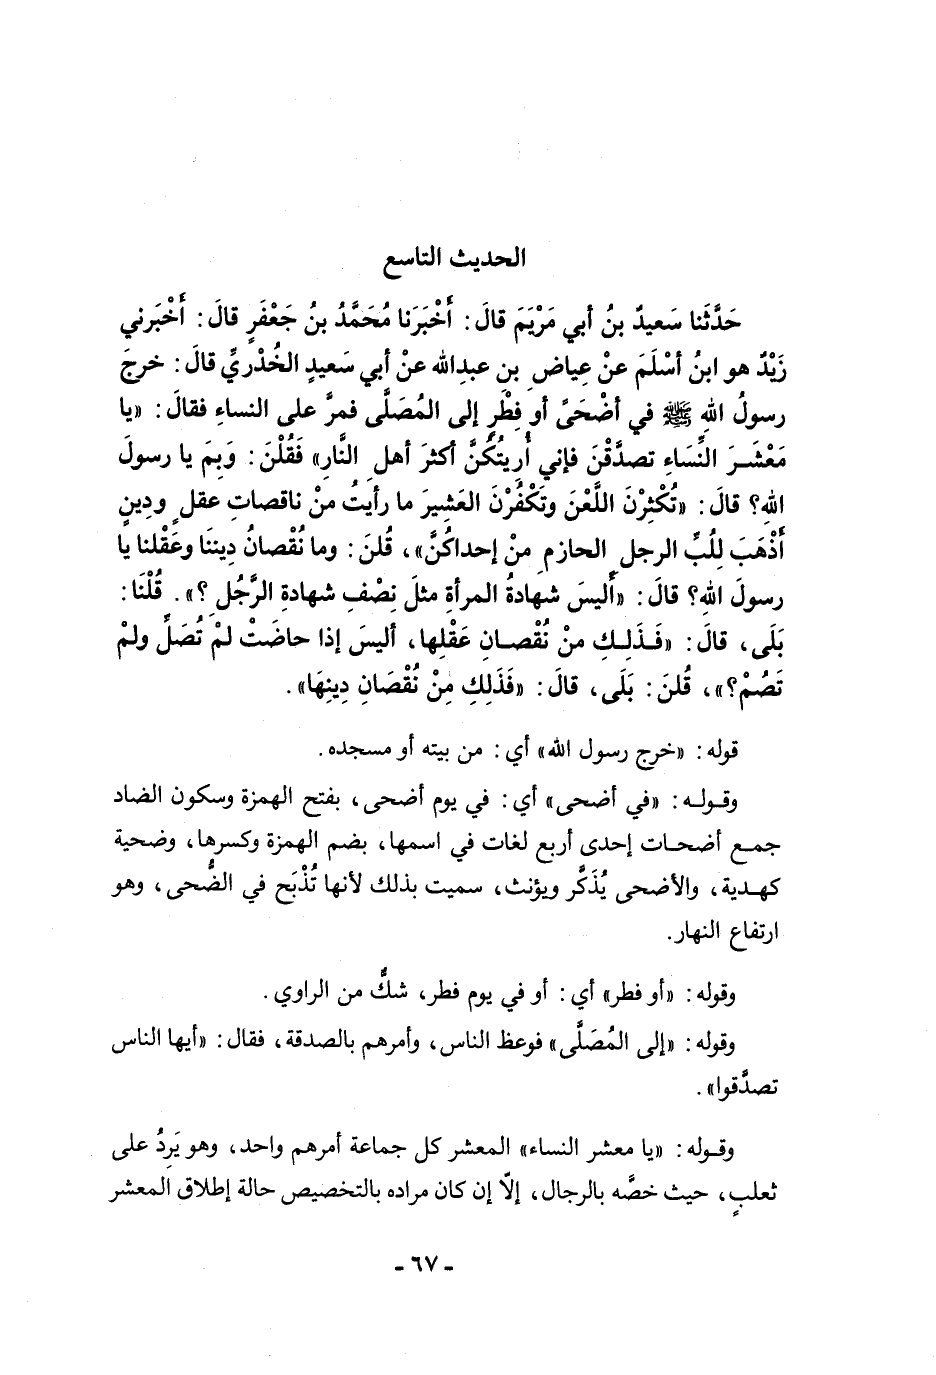 الحديث التاسع
حَدَّثَنا سَعيدٌ بنُ أبي مَرْيَمَ قالَ: أَخْبَرَنا مُحَمَّدُ بنُ جَعْفَرٍ قالَ: أَخْبَرني
زَيْدٌ هو ابنُ أسْلَمَ عنْ عِياضِ بنِ عبدِالله عنْ أبي سَعيدٍ الخُدْريِّ قالَ: خرجَ
رسولُ اللهِ ﷺ في أضْحَىً أو فِطْرٍ إلى المُصَلَّى فمرَّ على النساءِ فقالَ: «يا
مَعْشَـرَ النِّسَاءِ تصدَّقْنَ فإني أُرِيتُكُنَّ أكثرَ أهلِ النَّارِ» فَقُلْنَ: وَبِمَ يا رسولَ
اللهِ؟ قالَ: «تُكْثِرْنَ اللَّعْنَ وتَكْفُرْنَ العَشِيرَ ما رأيتُ منْ ناقصاتِ عقلٍ ودِينٍ
أَذْهَبَ لِلُبِّ الرجلِ الحازمِ منْ إحداكُنَّ»، قُلنَ: وما نُقْصانُ دِيننَا وعَقْلنا يا
رسولَ اللهِ؟ قالَ: «أَليسَ شهادةُ المرأةِ مثلَ نِصْفِ شهادةِ الرَّجُلِ؟». قُلْنَا:
بَلَى، قالَ: «فَـذَلِـكِ منْ نُقْصـانِ عَقْلِها، أليسَ إذا حاضَتْ لمْ تُصَلِّ ولمْ
تَصُمْ؟»، قُلنَ: بَلَى، قالَ: «فَذَلِكِ مِنْ نُقْصَانِ دِينِهَا».
قوله: «خرج رسول الله» أي: من بيته أو مسجده.
وقـولـه: «في أضحى» أي: في يوم أضحى، بفتح الهمزة وسكون الضاد
جمـع أضحـات إحدى أربع لغات في اسمها، بضم الهمزة وكسرها، وضحية
كهـدية، والأضحى يُذَكَّر ويؤنث، سميت بذلك لأنها تُذْبَح في الضُّحى، وهو
ارتفاع النهار.
وقوله: «أو فطر» أي: أو في يوم فطر، شكٌّ من الراوي.
وقوله: «إلى المُصَلَّى» فوعظ الناس، وأمرهم بالصدقة، فقال: «أيها الناس
تصدَّقوا».
وقـوله: «يا معشر النساء» المعشر كل جماعة أمرهم واحد، وهو يَرِدُ على
ثعلبٍ، حيث خصَّه بالرجال، إلّا إن كان مراده بالتخصيص حالة إطلاق المعشر
- ٦٧ -